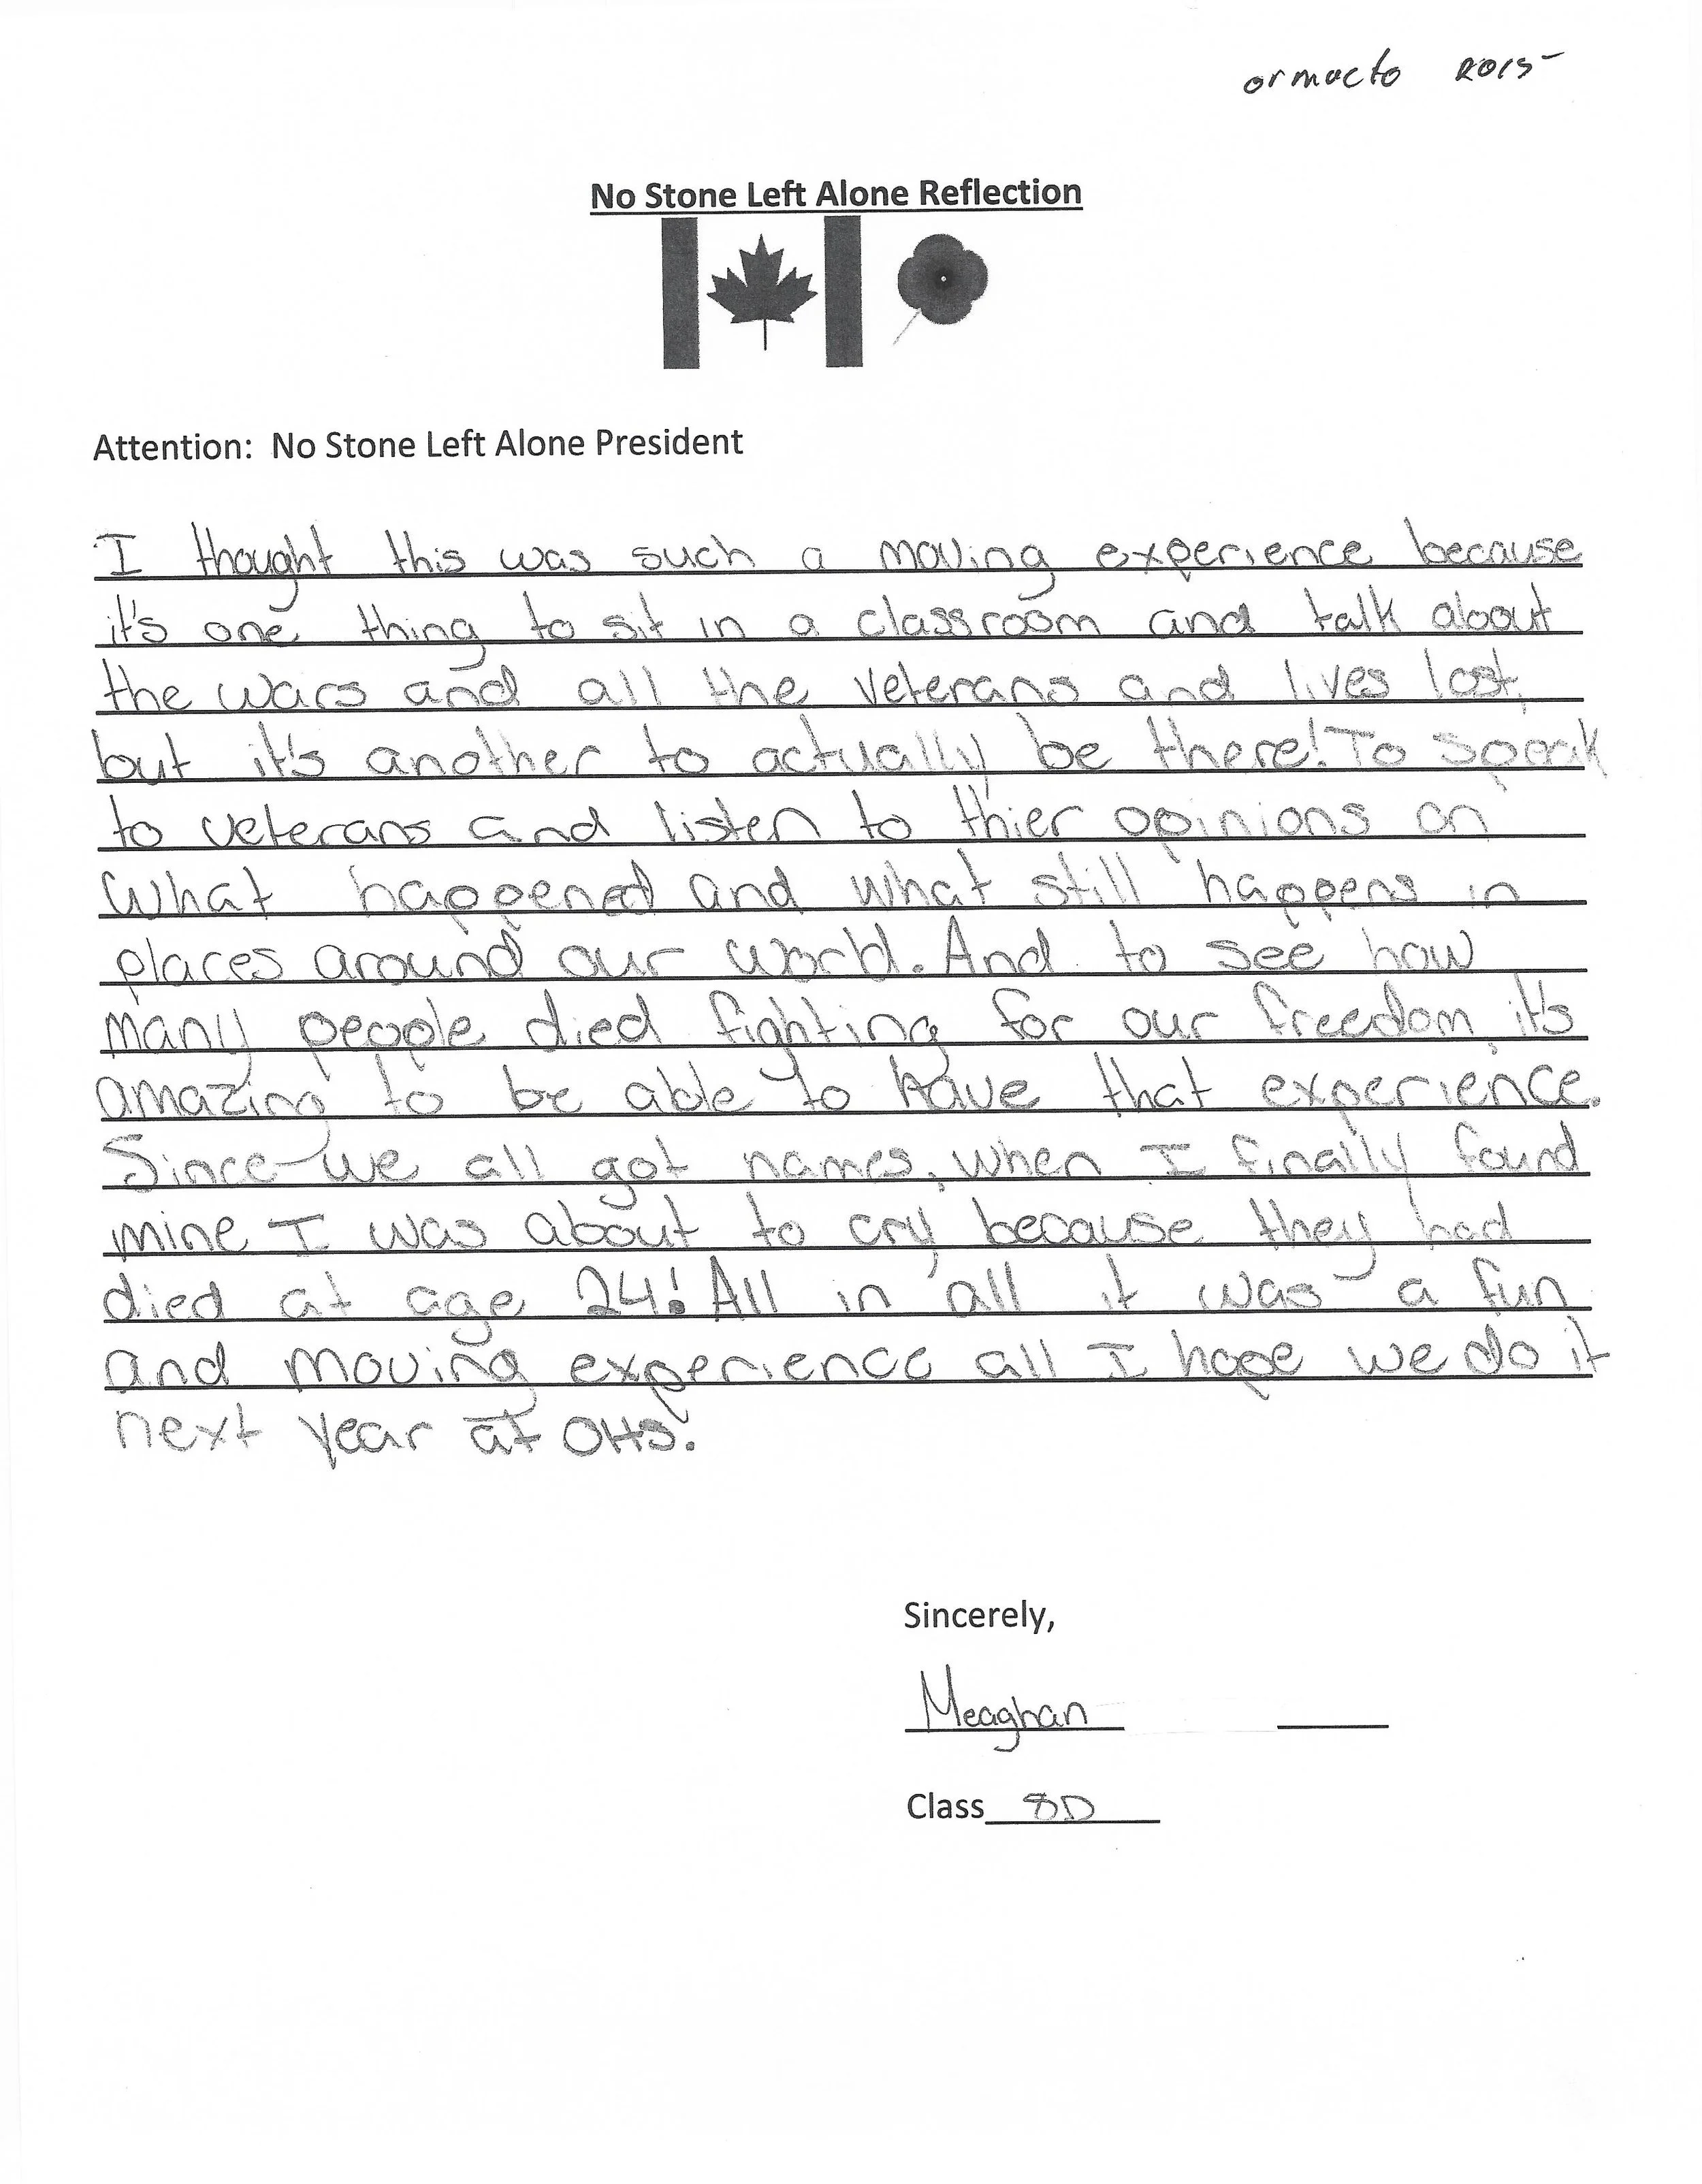 ormocto 2015
No Stone Left Alone Reflection
Attention: No Stone Left Alone President
I thought this was such a moving experience because
it's one thing to sit in a classroom and talk about
the wars and all the veterans and lives lost,
but it's another to actually be there! To speak
to veterans and listen to thier opinions on
what happened and what still happens in
places around our world. And to see how
many people died fighting for our freedom, it's
amazing to be able to have that experience.
Since we all got names, when I finally found
mine I was about to cry because they had
died at age 24! All in all it was a fun
and moving experience all I hope we do it
next year at OHS.
Sincerely,
Meaghan
Class 8D